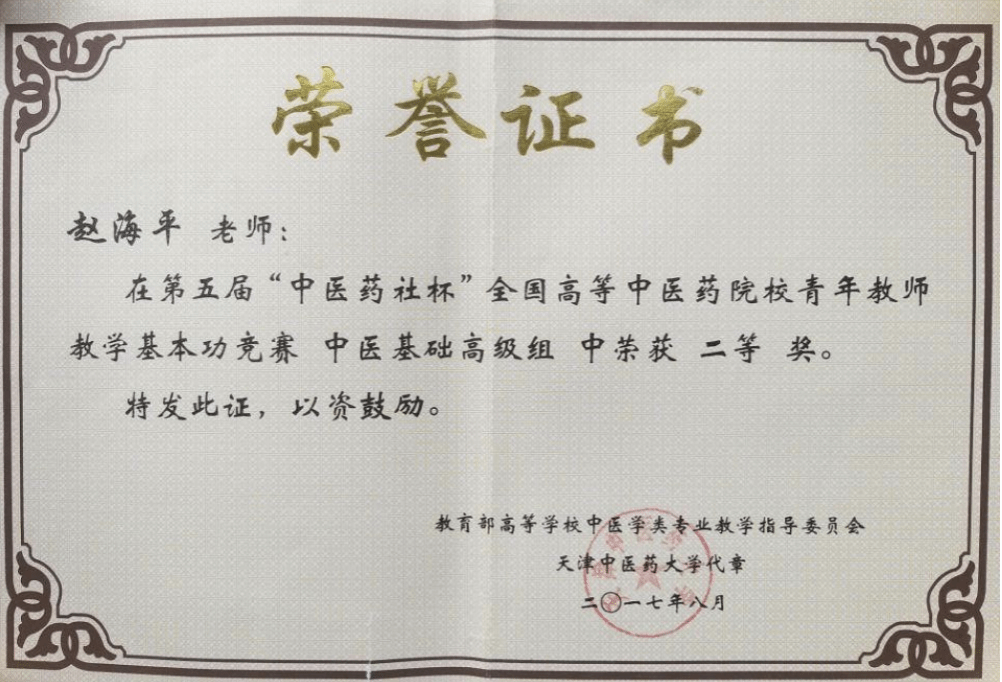 荣誉证书
赵海平 老师：
在第五届“中医药社杯”全国高等中医药院校青年教师
教学基本功竞赛 中医基础高级组 中荣获 二等 奖。
特发此证，以资鼓励。
教育部高等学校中医学类专业教学指导委员会
天津中医药大学代章
二〇一七年八月